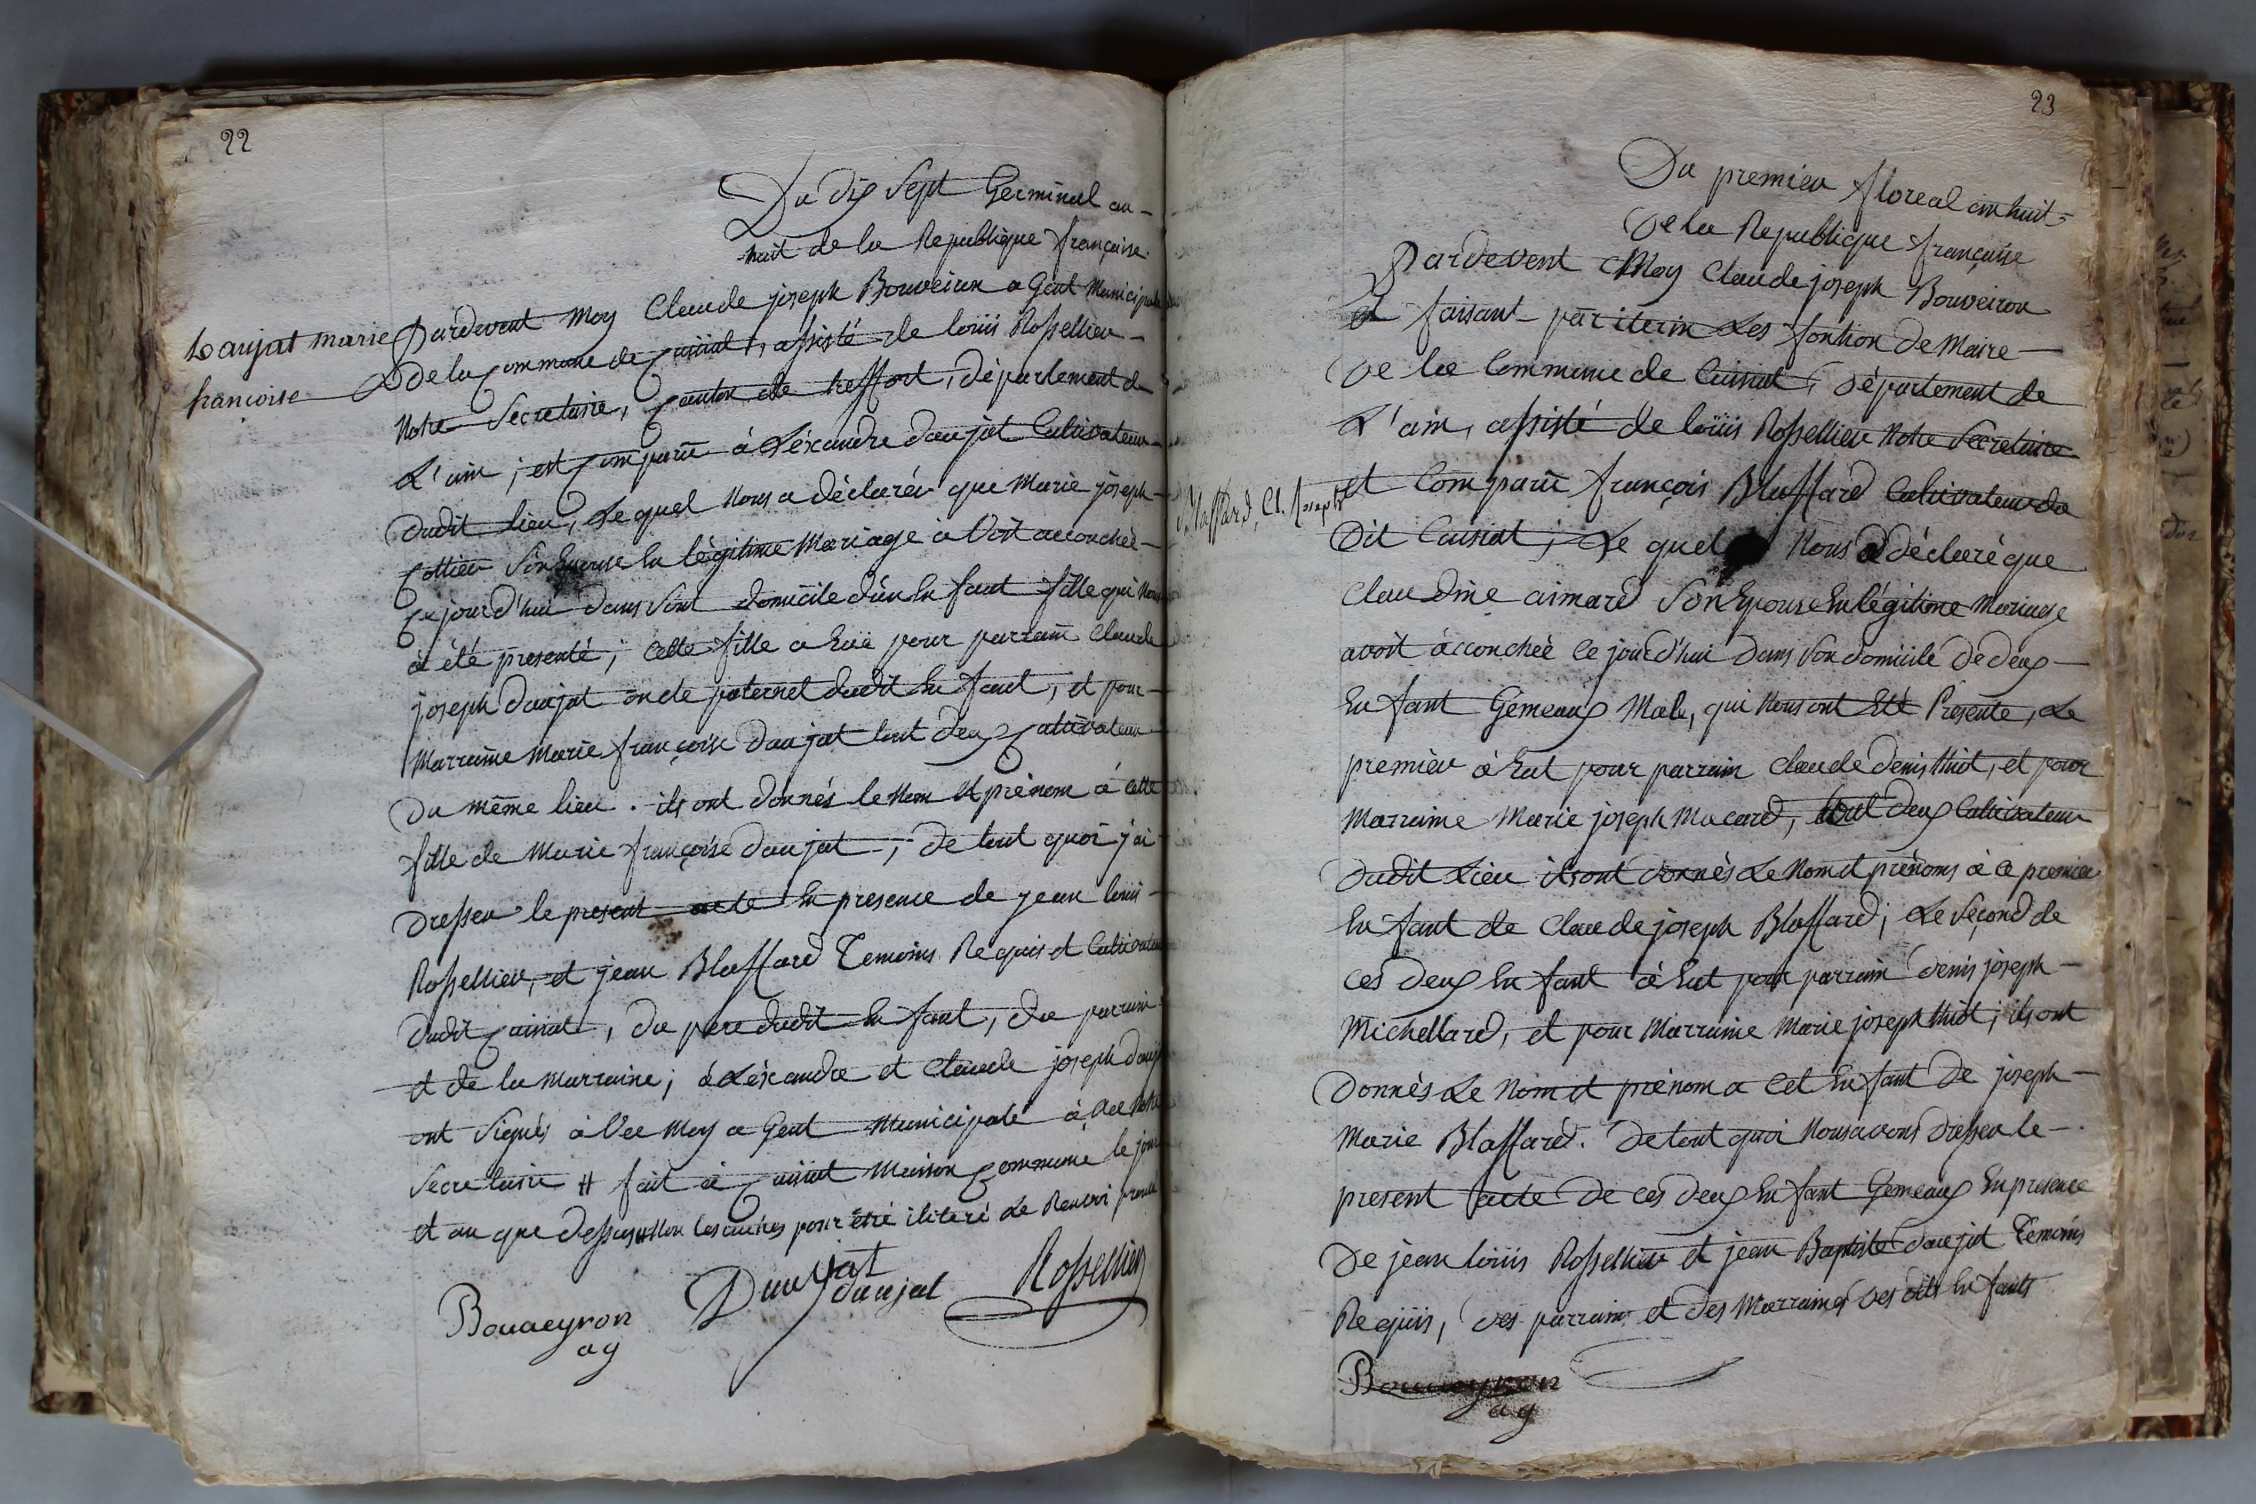 22
Du dix Sept Germinal an
huit de la Republique française
Daujat marie
françoise
Pardevent Moy Claude joseph Bouveiron a Gent Municipale
de la Commune de Cuisiat, assisté de loüis Rossellier
Notre Secretaire, Canton de treffort, département de
L'ain; est Comparü à Léxandre daujat Cultivateur
dudit lieu, Le quel Nous a déclaréz que Marie joseph
Collier Son Epouse En légitime Mariage à Voit accouchée
Ce jourd'hui dans Sont domicile d'un En fant fille qui Nous
à été presenté; cette fille a Euë pour parrain Claude
joseph daujat oncle paternel dudit En fant, et pour
Marraine Marie françoise daujat tout deux Cultivateur
du même lieu. ils ont donnés le Nom Et prénom à cette
fille de Marie françoise daujat; de tout quoi j'ai
dresser le present acte En presence de jean louis
Rossellier, et jean Blaffard Temoins Requis et Cultivateur
dudit Cuisiat, du pere dudit En fant, du parrain
et de la Marraine; à Léxandre et Claude joseph daujat
ont Signés à Vec Moy a Gent Municipale à Vec Notre
Secretaire # fait à Cuisiat Maison Commune le jour
et an que dessus # Non les autres pour être iliteré Le Renvoi
Daujat
daujat
Rossellier
Bouveyron
ag
23
Du premier floreal an huit
De la Republique française
Pardevent Moy Claude joseph Bouveiron
et faisant par iterin Les fontion de Maire
De la Commune de Cuisiat, Département de
L'ain, assisté de loüis Rossellier Notre Secretaire
Blaffard, Cl. Joseph
et Comparü françois Blaffard Cultivateur du
Dit Cuisiat; Le quel Nous a déclaré que
Claudine aimard Son Epouse En légitime Mariage
avoit àccouchée Ce jourd'hui Dans Son domicile De deux
En fant Gémeaux Male, qui Nous ont Eté Presente, Le
premier à Eut pour parrain claude denis thiot, et pour
Marraine Marie joseph Macard, tout deux Cultivateur
dudit Lieu ils ont donnés Le Nom et prénoms à ce premier
En fant de Claude joseph Blaffard; Le Second de
ces deux En fant à Eut pour parrain denis joseph
Michellard, et pour Marraine Marie joseph thiot; ils ont
donnés Le Nom et prénom a Cet En fant De joseph
Marie Blaffard. De tout quoi Nous avons Dresser le
present acte De ces deux En fant Gemeaux En presence
De jean loüis Rossellier et jean Baptiste daujat Temoins
Requis, Des parrains et des Marraines Des dits En fants
Bouveyron
ag